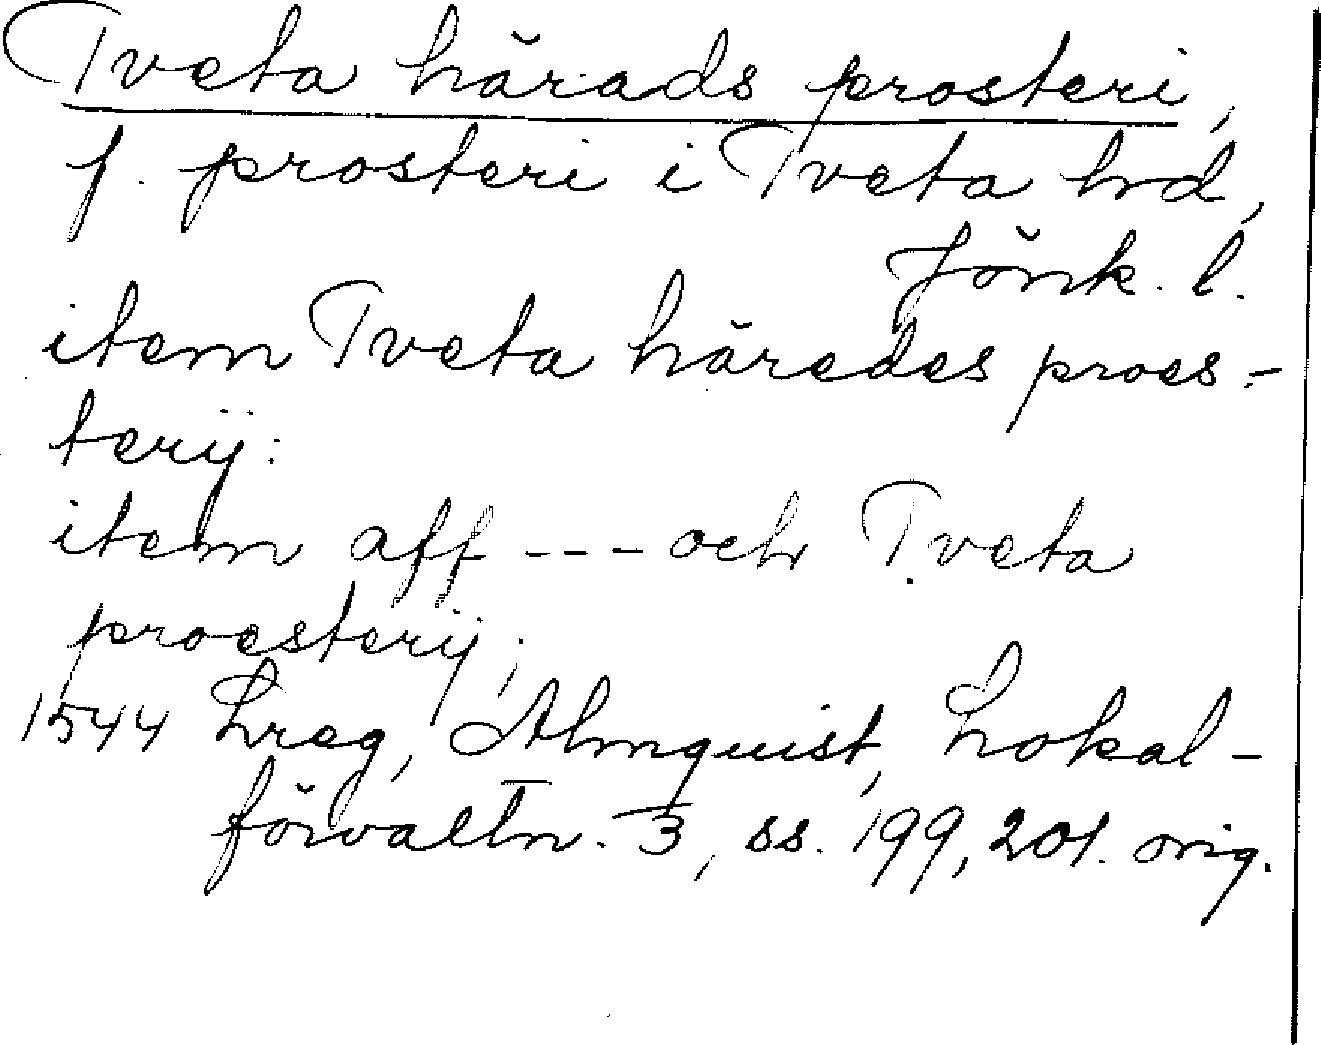 Tveta härads prosteri,
f. prosteri i Tveta hrd,
Jönk. l.
item Tveta häredes proes-
terij:
item aff --- och Tveta
proesterij;
1544 Lreg, Almquist, Lokal-
förvaltn. 3, ss. 199, 201. orig.